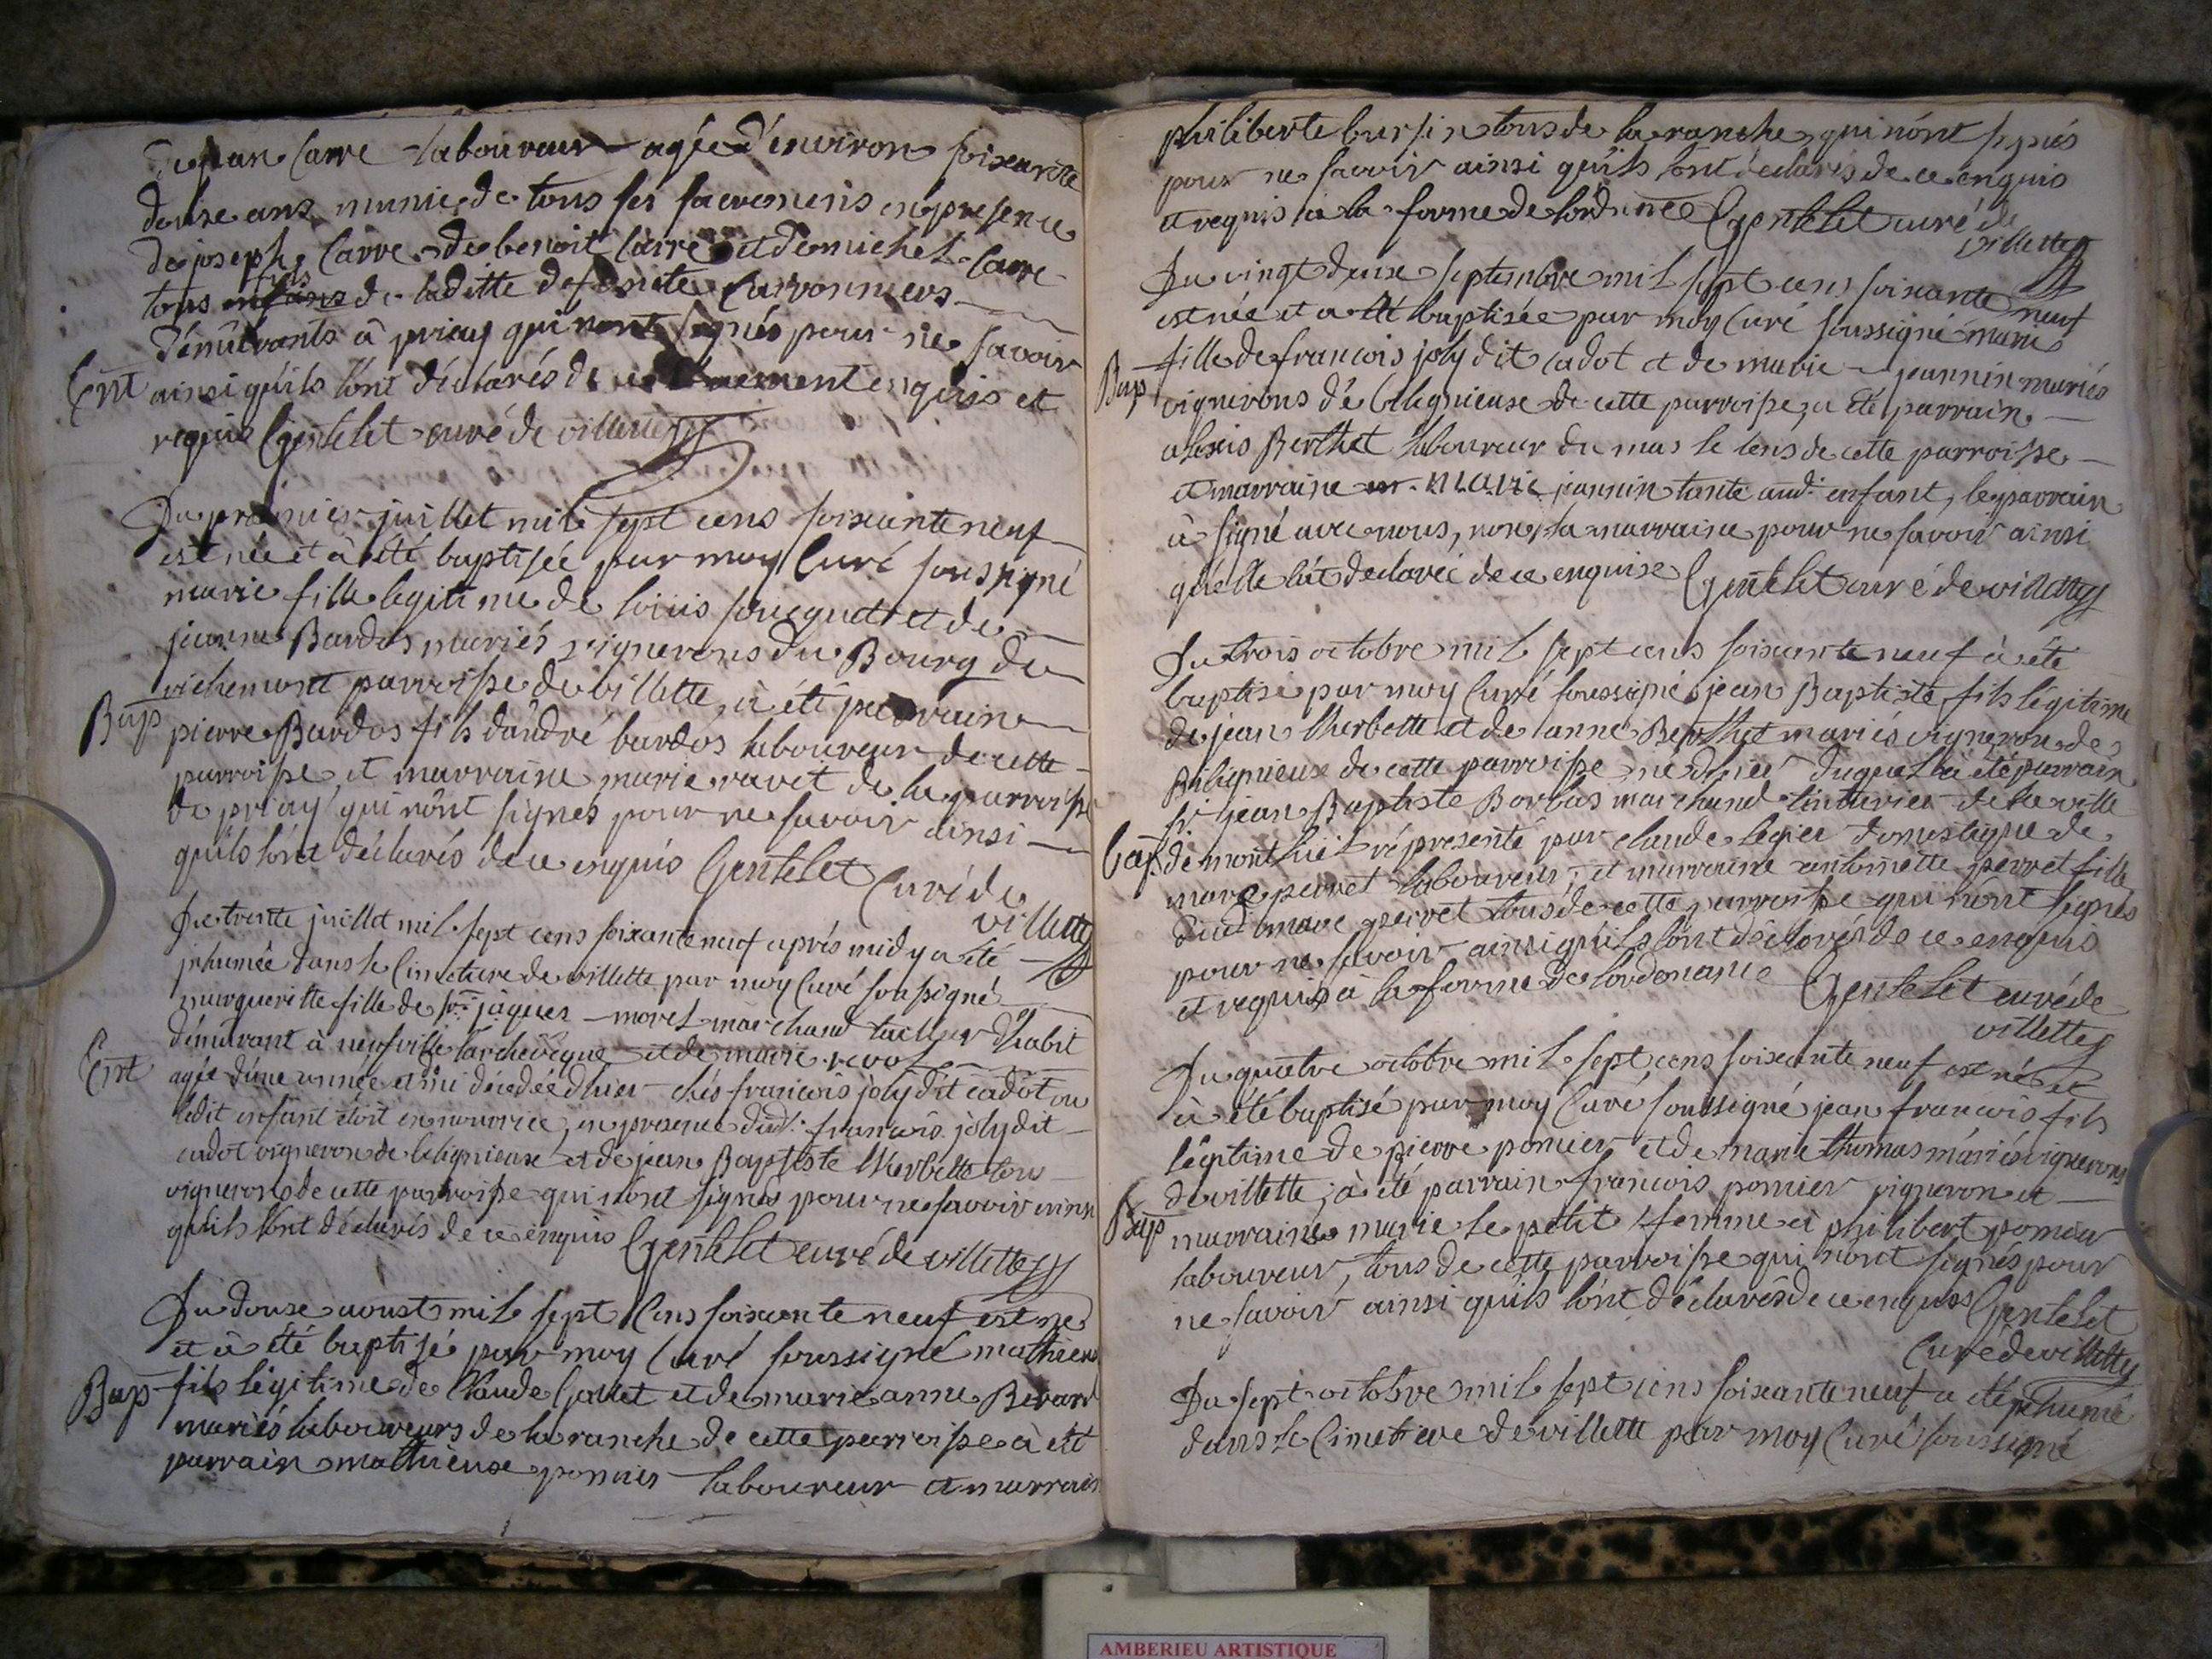 de jean Carré laboureur agée d'environ soixante
douse ans munie de tous ses sacremens en presence
de joseph Carre de benoit Carre et de michel Carre
tous fils de laditte defunte Carronniers
démeurants à priay qui n'ont signés pour ne savoir
Ent ainsi qu'ils l'ont déclarés de ce enquis et
requis Gentelet curé de villette
Du premier juillet mil sept cens soixante neuf
est née et à été baptisée par moy Curé soussigné
marie fille legitime de loüis fouquet et de
jeanne Bardos mariés vignerons du Bourg de
richemont parroisse de villette, à été parrain
Bap pierre Bardos fils d'andré bardos laboureur de cette
parroisse, et marraine marie ravet de la parroisse
de priay qui n'ont signés pour ne savoir ainsi
qu'ils l'ont déclarés de ce enquis Gentelet
Curé de
villette
Du trente juillet mil sept cens soixante neuf aprés midy a été
jnhumée dans le Cimetiere de villette par moy Curé soussigné
margueritte fille de sr. jâques morel marchand tailleur d'habit
démeurant à neufville l'archeveque et de marie revol
Ent agée d'une année et dmi décedée d'hier chés francois joly dit cadot ou
ledit enfant étoit en nourrice, en presence dud. francois joly dit
cadot vigneron de bilignieux et de jean Baptiste therbette tous
vignerons de cette parroisse qui n'ont signés pour ne savoir ainsi
qu'ils l'ont déclarés de ce enquis Gentelet curé de villette
Du douse aoust mil sept Cens soixante neuf est né
et à été baptisé par moy Curé soussigné mathieu
Bap fils légitime de Claude Gollet et de marie anne Berard
mariés laboureurs de la ranche de cette parroisse à été
parrain mathieux pomier laboureur et marraine
philiberte bursin tous de la ranche, qui n'ont signés
pour ne savoir ainsi qu'ils l'ont déclarés de ce enquis
et requis à la forme de l'ordnnce Gentelet curé de
villette
Du vingt deux septembre mil sept cens soixante neuf
est née et a été baptisée par moy Curé soussigné marie
fille de francois joly dit cadot et de marie jeannin mariés
Bap vignerons dé bilignieux de cette parroisse, a été parrain
alexis Berthet laboureur du mas le tens de cette parroisse
et marraine marie jeannin tante aud. enfant, le parrain
à signé avec nous, non la marraine pour ne savoir ainsi
qu'elle l'at declaré de ce enquise Gentelet curé de villette
Du trois octobre mil sept cens soixante neuf à été
baptisé par moy Curé soussigné jean Baptiste fils légitime
de jean therbette et de anne Berthet mariés vigneron de
Bilignieux de cette parroisse né d'hier duquel à été parrain
sr. jean Baptiste Borbas marchand tinturier de la ville
Bap. de montluel répresenté par claude legier domestique de
marc perret laboureur, et marraine antoinette perret fille
dud. marc perret tous de cette parroisse qui n'ont signés
pour ne savoir ainsi qu'ils l'ont déclarés de ce enquis
et requis à la forme de l'ordonnance Gentelet curé de
villette
Du quatre octobre mil sept cens soixante neuf est né et
à été baptisé par moy Curé soussigné jean francois fils
légitime de pierre pomier et de marie thomas mariés vignerons
de villette, à été parrain francois pomier vigneron et
Bap marraine marie le petit femme à philibert pomier
laboureur, tous de cette parroisse qui n'ont signés pour
ne savoir ainsi qu'ils l'ont déclarés de ce enquis Gentelet
Curé de villette
Du sept octobre mil sept cens soixante neuf a été jnhumé
dans le Cimetiere de villette par moy Curé soussigné
AMBERIEU ARTISTIQUE